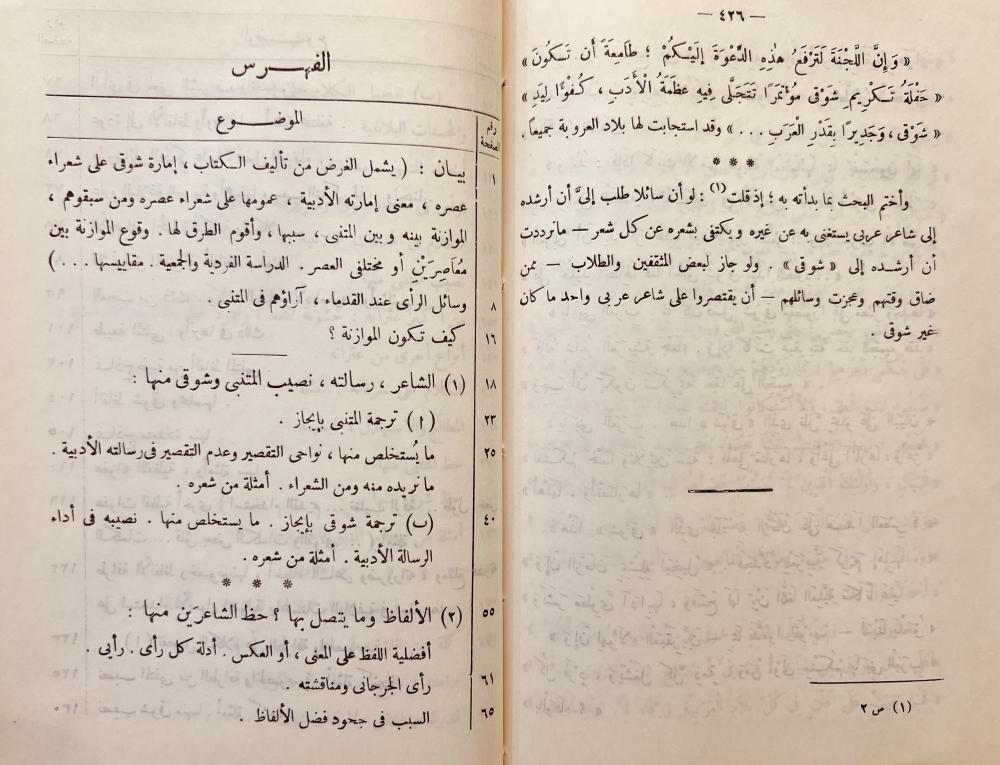 — ٤٢٦ —
« وَإِنَّ اللَّجْنَةَ لَتَرْفَعُ هٰذِهِ الدَّعْوَةَ إِلَيْكُمْ ؛ طَامِعَةً أَن تَكُونَ »
« حَفْلَةُ تَكْرِيمِ شَوْقى مُؤْتَمَرًا تَتَجَلَّى فِيهِ عَظَمَةُ الْأَدَبِ ، كُفْوًا لِيَدِ »
« شَوْقى ، وَجَدِيرًا بِقَدْرِ الْعَرَبِ . . . » وقد استجابت لها بلاد العروبة جميعاً .
* * *
وأختم البحث بما بدأته به ؛ إذ قلت (١) : لو أن سائلا طلب إلىَّ أن أرشده
إلى شاعر عربى يستغنى به عن غيره ويكتفى بشعره عن كل شعر — ما ترددت
أن أرشده إلى « شوقى » . ولو جاز لبعض المثقفين والطلاب — ممن
ضاق وقتهم وعجزت وسائلهم — أن يقتصروا على شاعر عربى واحد ما كان
غير شوقى .
(١) ص ٢
الفهرس
رقم الصفحة الموضوع
١ بيان : ( يشمل الغرض من تأليف الكتاب ، إمارة شوقى على شعراء
عصره ، معنى إمارته الأدبية ، عمومها على شعراء عصره ومن سبقوهم ،
الموازنة بينه وبين المتنبى ، سببها ، وأقوم الطرق لها . وقوع الموازنة بين
مُعَاصِرَيْنِ أو مختلفى العصر . الدراسة الفردية والجمعية . مقاييسها . . . )
٨ وسائل الرأى عند القدماء ، آراؤهم فى المتنبى .
١٦ كيف تكون الموازنة ؟
١٨ (١) الشاعر ، رسالته ، نصيب المتنبى وشوقى منها :
٢٣ (ا) ترجمة المتنبى بإيجاز .
٢٥ ما يُستخلص منها ، نواحى التقصير وعدم التقصير فى رسالته الأدبية .
ما نريده منه ومن الشعراء . أمثلة من شعره .
٤٠ (ب) ترجمة شوقى بإيجاز . ما يستخلص منها . نصيبه فى أداء
الرسالة الأدبية . أمثلة من شعره .
* * *
٥٥ (٢) الألفاظ وما يتصل بها ؟ حظ الشاعرَين منها :
أفضلية اللفظ على المعنى ، أو العكس . أدلة كل رأى . رأيى .
٦١ رأى الجرجانى ومناقشته .
٦٥ السبب فى جحود فضل الألفاظ .